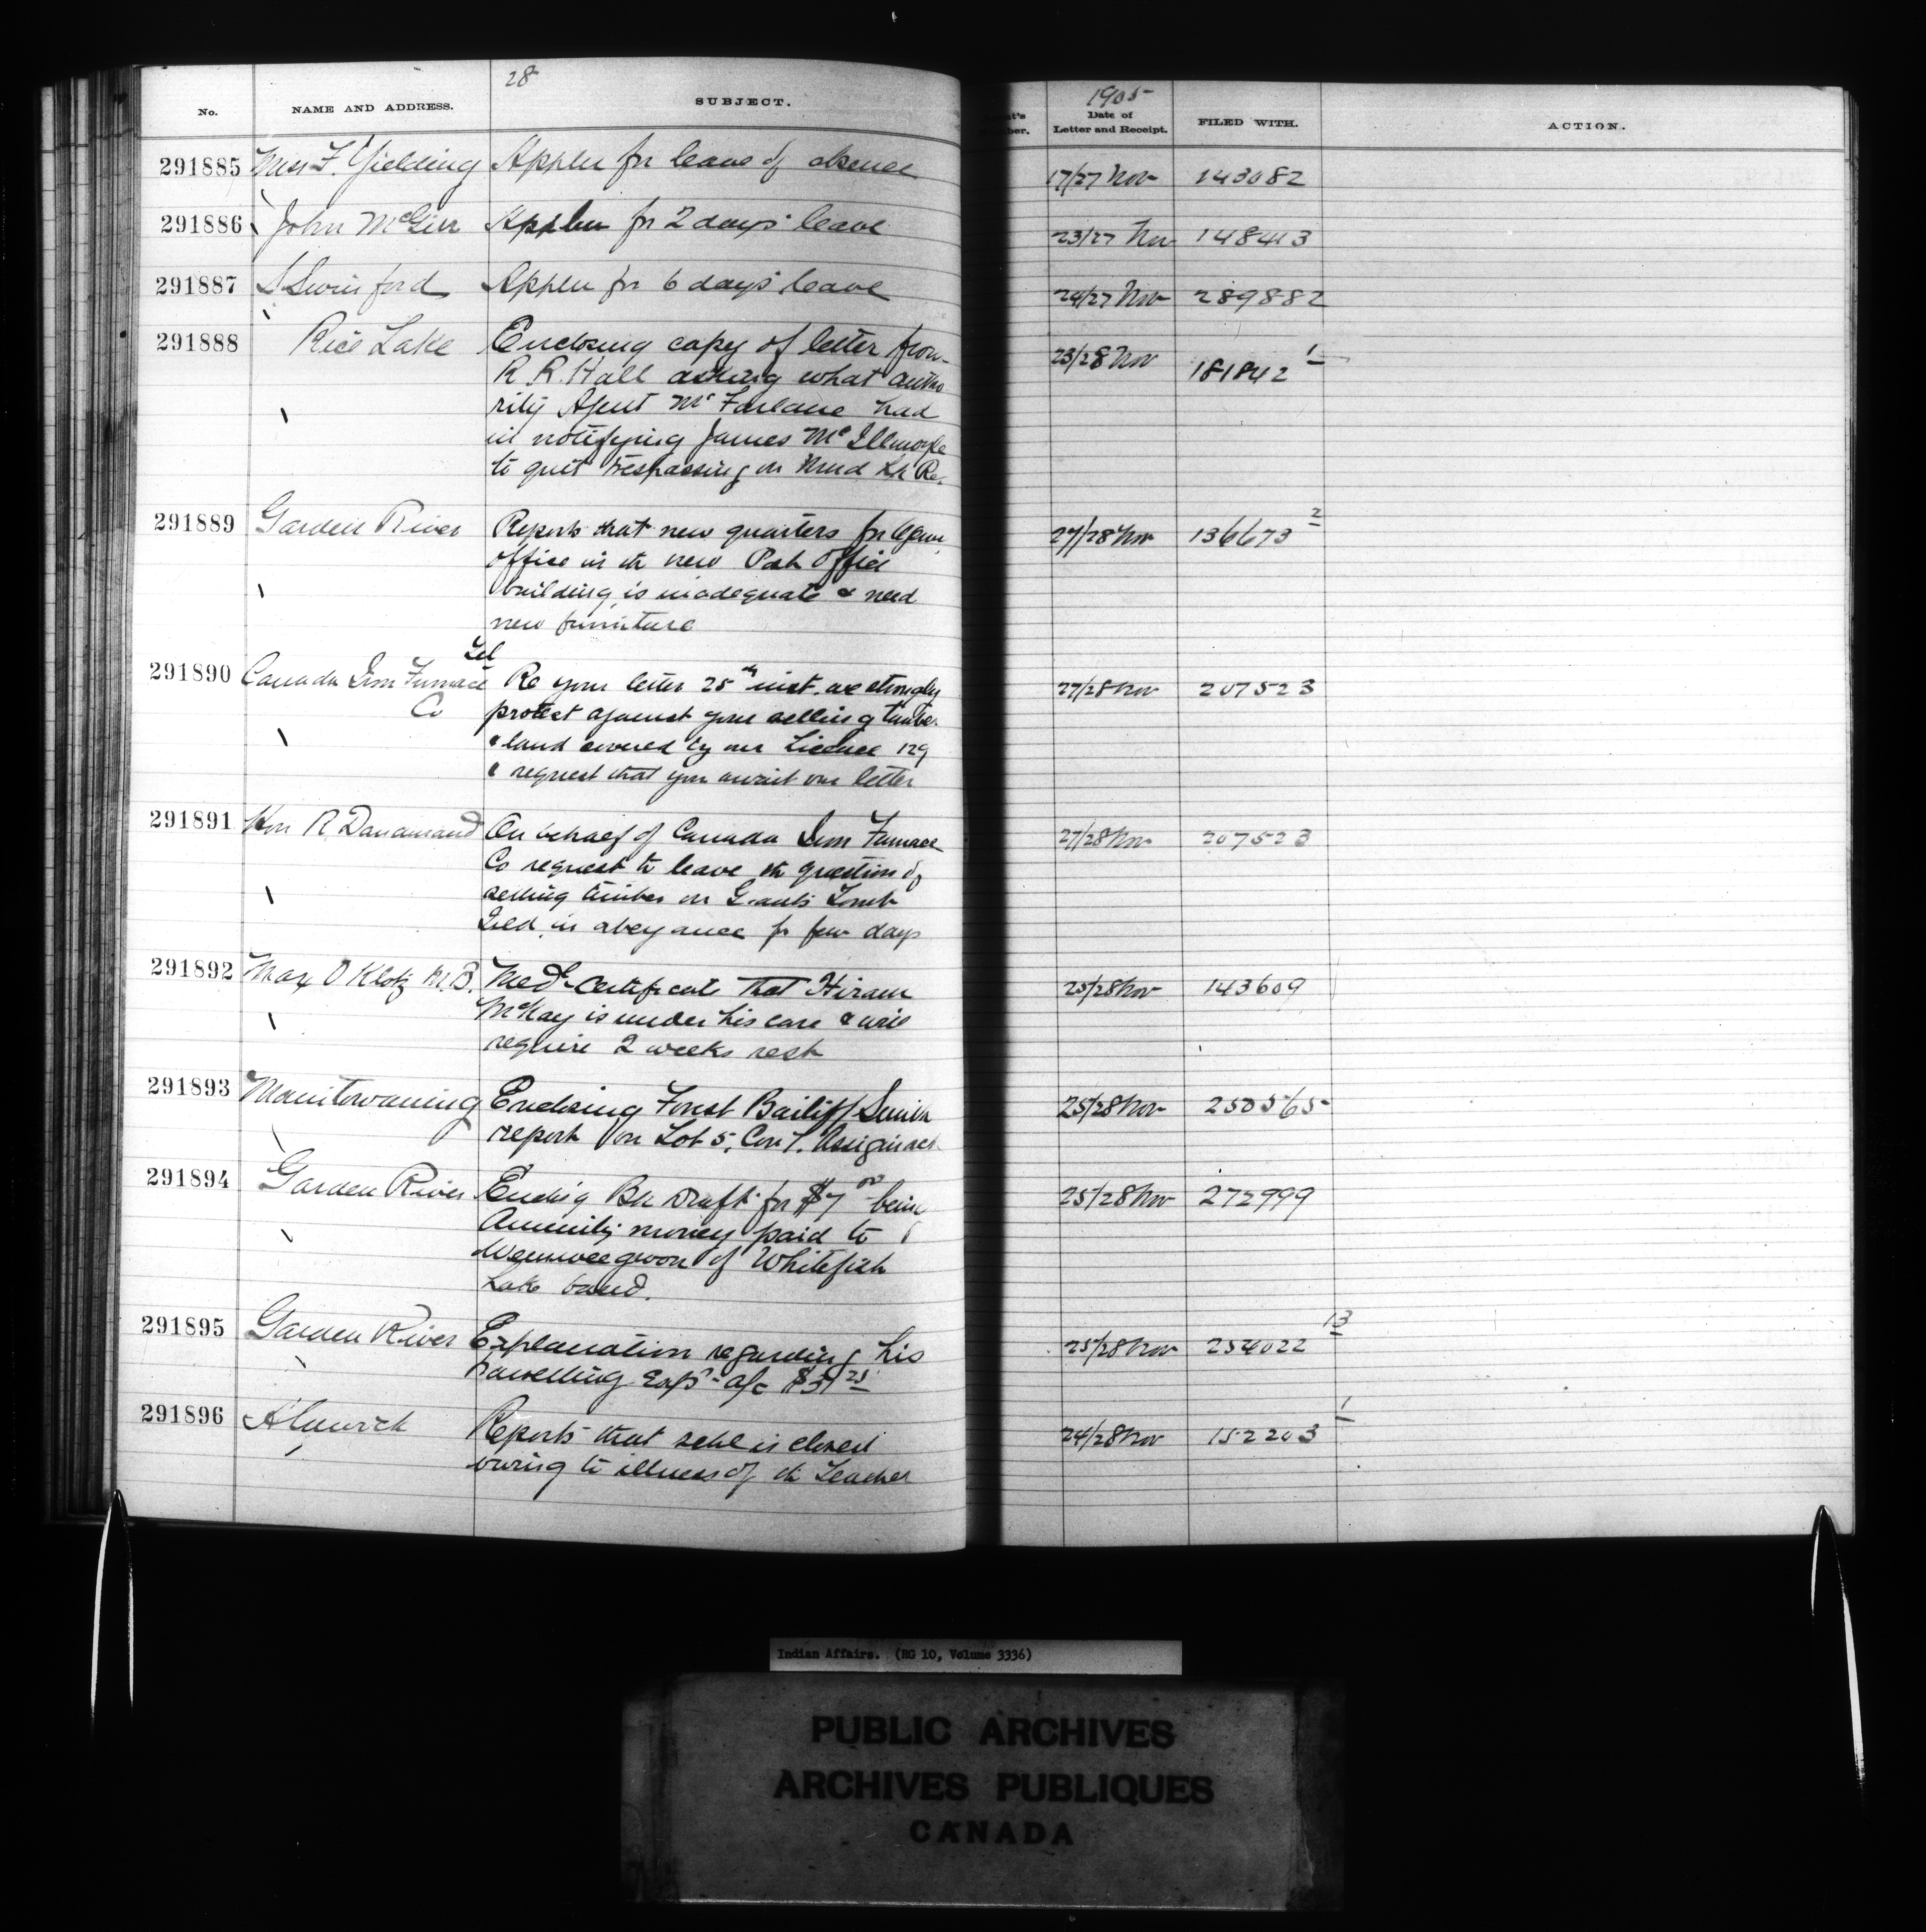 28
1905
No. NAME AND ADDRESS. SUBJECT. Date of Letter and Receipt. FILED WITH. ACTION.
291885 Miss F. Yielding Applen for leave of absence 17/27 Nov 143082
291886 John McGirr Applen for 2 days' leave 23/27 Nov 148413
291887 S Swinford Applen for 6 days' leave 24/27 Nov 289882
291888 Rice Lake Enclosing copy of letter from 23/28 Nov 181842 1
R. R. Hall asking what autho
rity Agent McFarlane had
in notifying James McIllmoyle
to quit trespassing on Mud Lk Re.
291889 Garden River Reports that new quarters for 27/28 Nov 136673 2
office in th new Post Office
building is inadequate & need
new furniture
Tel
291890 Canada Iron Furnace Re your letter 25th inst. we strongly 27/28 Nov 207523
Co protest against your selling timber
& land covered by our Licence 129
& request that you await our letter
291891 Hon R Dandurand On behalf of Canada Iron Furnace 27/28 Nov 207523
Co request to leave th question of
selling timber on Giants Tomb
Isld. in abeyance for few days
291892 Max O Klotz M.B. Medl Certificate that Hiram 25/28 Nov 143609
McKay is under his care & will
require 2 weeks rest
291893 Manitowaning Enclosing Forest Bailiff 25/28 Nov 250565
report on Lot 5, Con 1. Assiginack
291894 Garden River Enclsg Bk Draft for $7.00 being 25/28 Nov 272999
Annuity money paid to
of Whitefish
Lake band.
291895 Garden River Explanation regarding his 25/28 Nov 254022 13
travelling Exps a/c
291896 Alnwick Reports that schl is closed 24/28 Nov 152203 1
owing to illness of th Teacher
Indian Affairs. (RG 10, Volume 3336)
PUBLIC ARCHIVES
ARCHIVES PUBLIQUES
CANADA